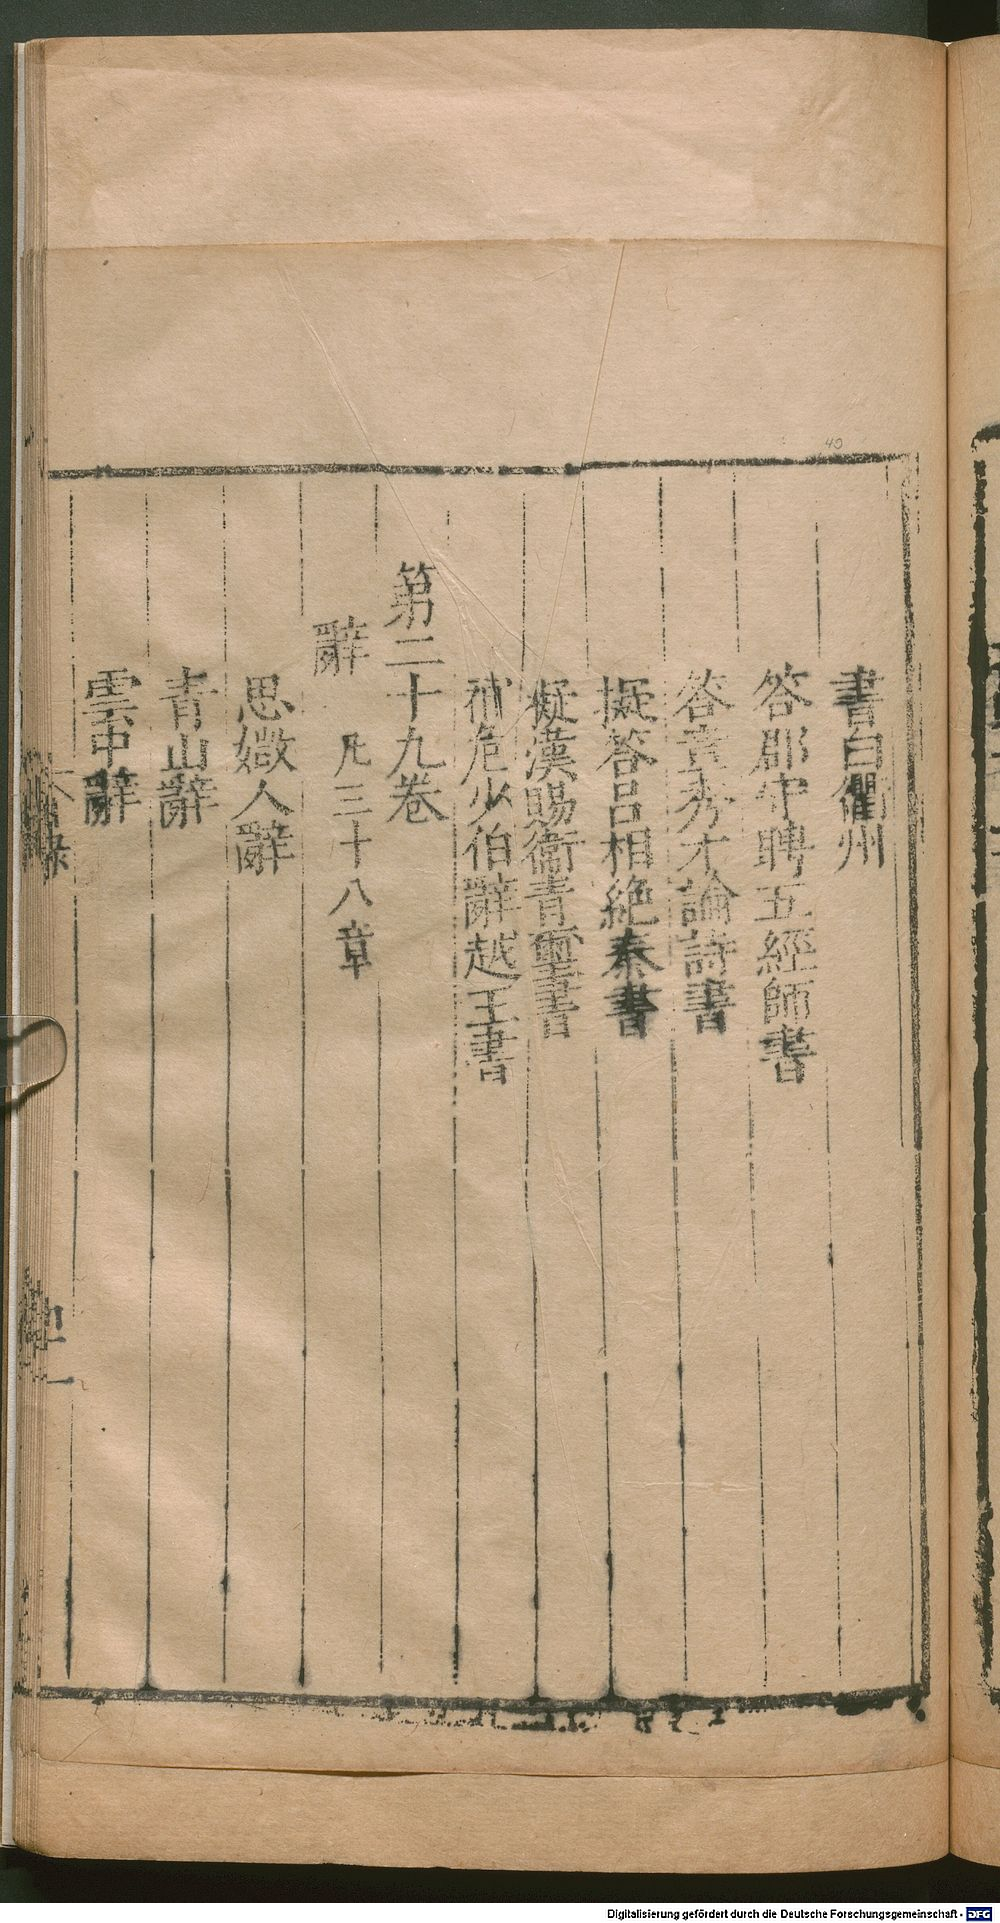 書白衢州
答郡守聘五經師書
答章秀才論詩書
擬答呂相絶秦書
擬漢賜衞青璽書
補危少伯辭越王書
第二十九卷
辭
凡三十八章
思媺人辭
青山辭
雲中辭
40
Digitalisierung gefördert durch die Deutsche Forschungsgemeinschaft - DFG